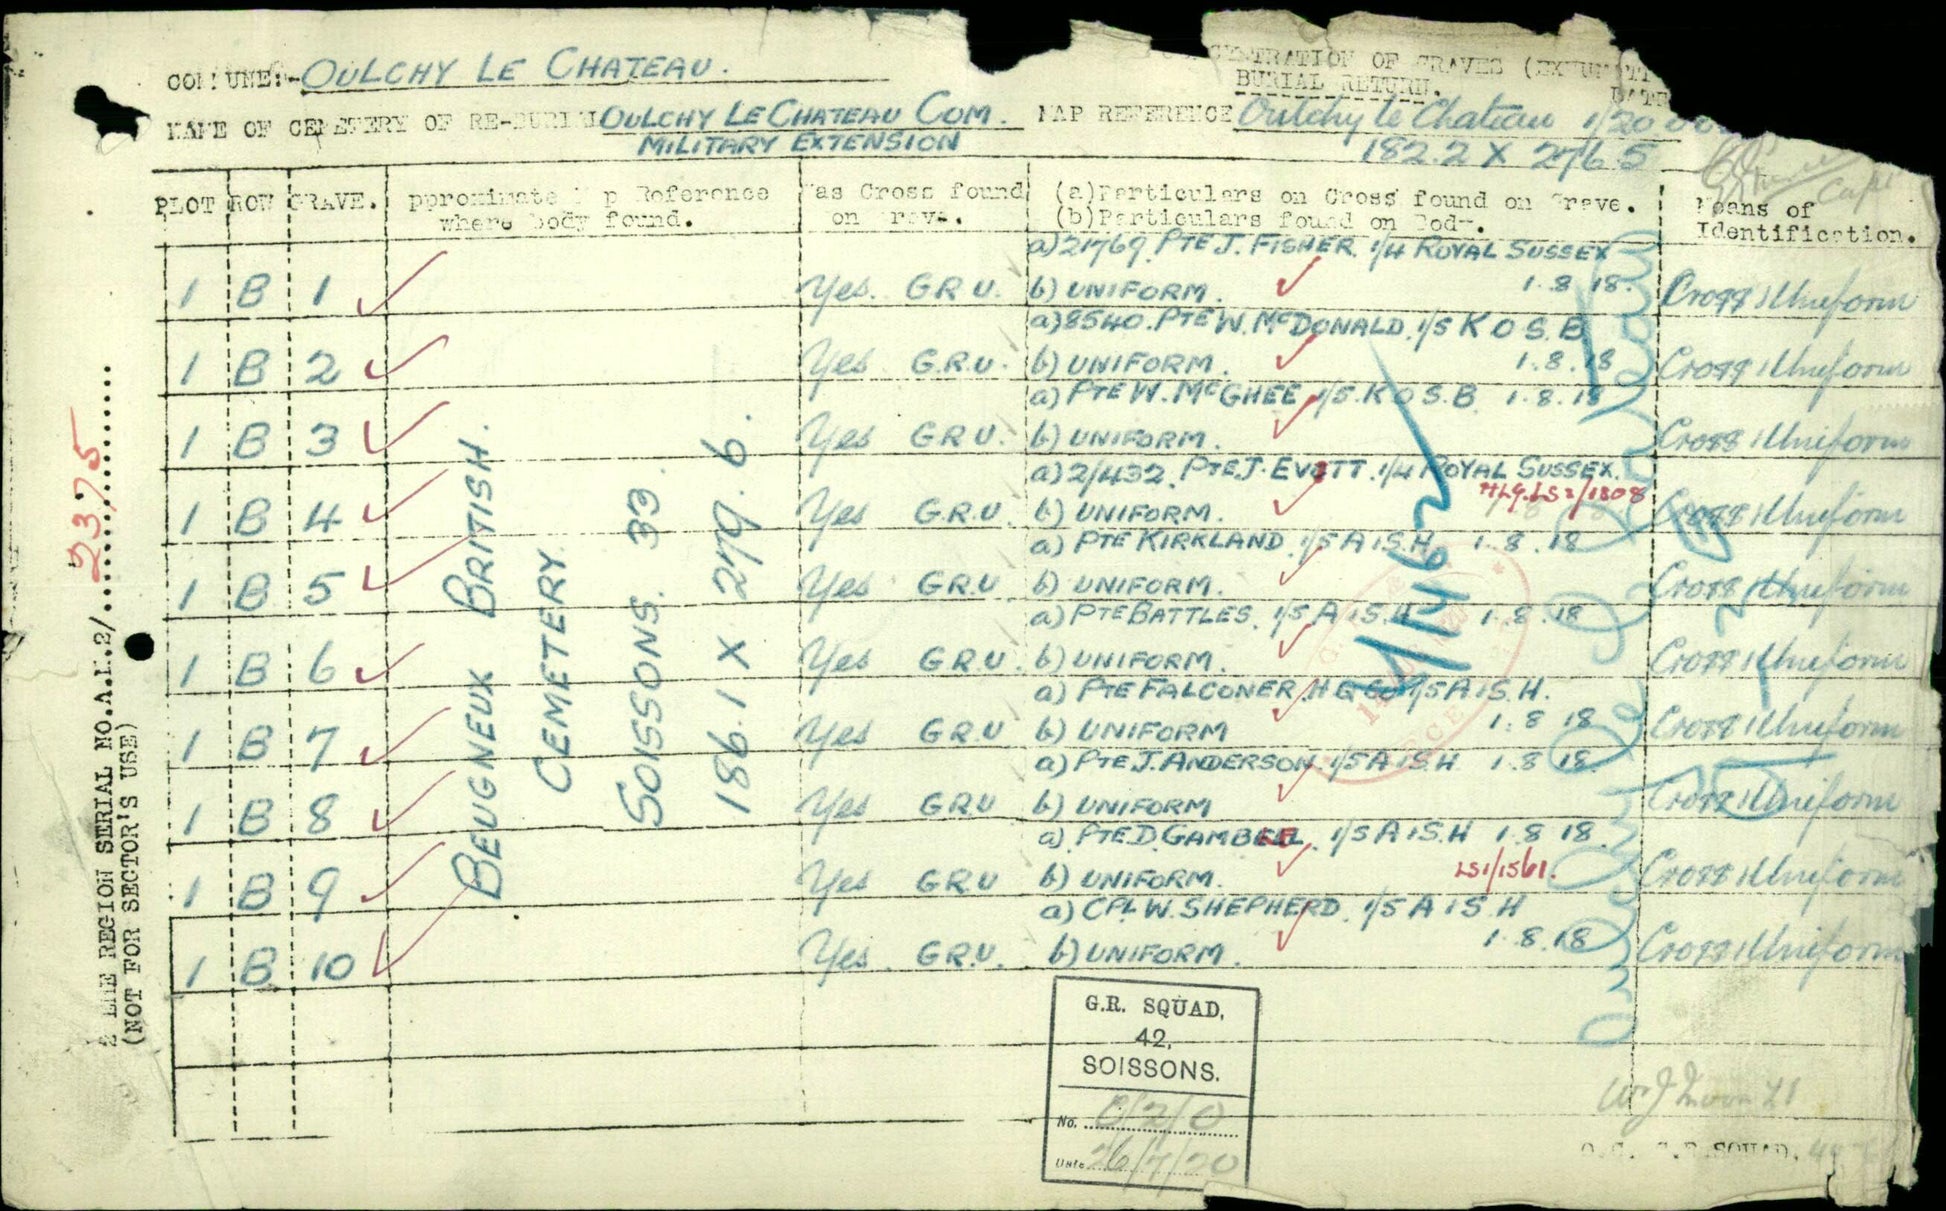 COMMUNE:- OULCHY LE CHATEAU.
CONCENTRATION OF GRAVES
BURIAL RETURN.
NAME OF CEMETERY OF RE-BURIAL OULCHY LE CHATEAU COM.
MILITARY EXTENSION
MAP REFERENCE Oulchy le Chateau 1/20.000
182.2 X 276.5
Capt
PLOT ROW GRAVE. pproximate Map Reference where body found. Was Cross found on Grave. (a)Particulars on Cross found on Grave. (b)Particulars found on Body. Means of Identification.
a) 21769. PTE J. FISHER. 1/4 ROYAL SUSSEX
1 B 1 Yes. G.R.U. b) UNIFORM. 1.8.18. Cross & Uniform
a) 8540. PTE W. McDONALD. 1/5 K O S. B
1 B 2 Yes G.R.U. b) UNIFORM. 1.8.18 Cross & Uniform
a) PTE W. McGHEE 1/5. K O S. B. 1.8.18
1 B 3 Yes G R U. b) UNIFORM. Cross & Uniform
a) 2/432. PTE J. EVOTT. 1/4 ROYAL SUSSEX.
1 B 4 Yes G.R.U. b) UNIFORM. Cross & Uniform
a) PTE KIRKLAND. 1/5 A & S. H. 1.8.18
1 B 5 Yes G.R.U. b) UNIFORM. Cross & Uniform
a) PTE BATTLES. 1/5 A & S. H 1.8.18
1 B 6 Yes G.R.U. b) UNIFORM. Cross & Uniform
a) PTE FALCONER. H Q Co 1/5 A & S. H.
1 B 7 Yes G.R.U b) UNIFORM 1.8.18 Cross & Uniform
a) PTE J. ANDERSON. 1/5 A & S. H 1.8.18.
1 B 8 Yes G.R.U b) UNIFORM Cross & Uniform
a) PTE D. GAMBELL. 1/5 A & S. H 1.8.18.
1 B 9 Yes G.R.U b) UNIFORM. LS1/1561. Cross & Uniform
a) CPL W. SHEPHERD. 1/5 A & S. H
1 B 10 Yes G.R.U. b) UNIFORM. 1.8.18 Cross & Uniform
BEUGNEUX BRITISH.
CEMETERY
SOISSONS. 33
186.1 X 279.6.
G.R. SQUAD,
42,
SOISSONS.
No.
Date 26/7/20
SQUAD,
REGION SERIAL NO.A.M.2/ 2375
(NOT FOR SECTOR'S USE)